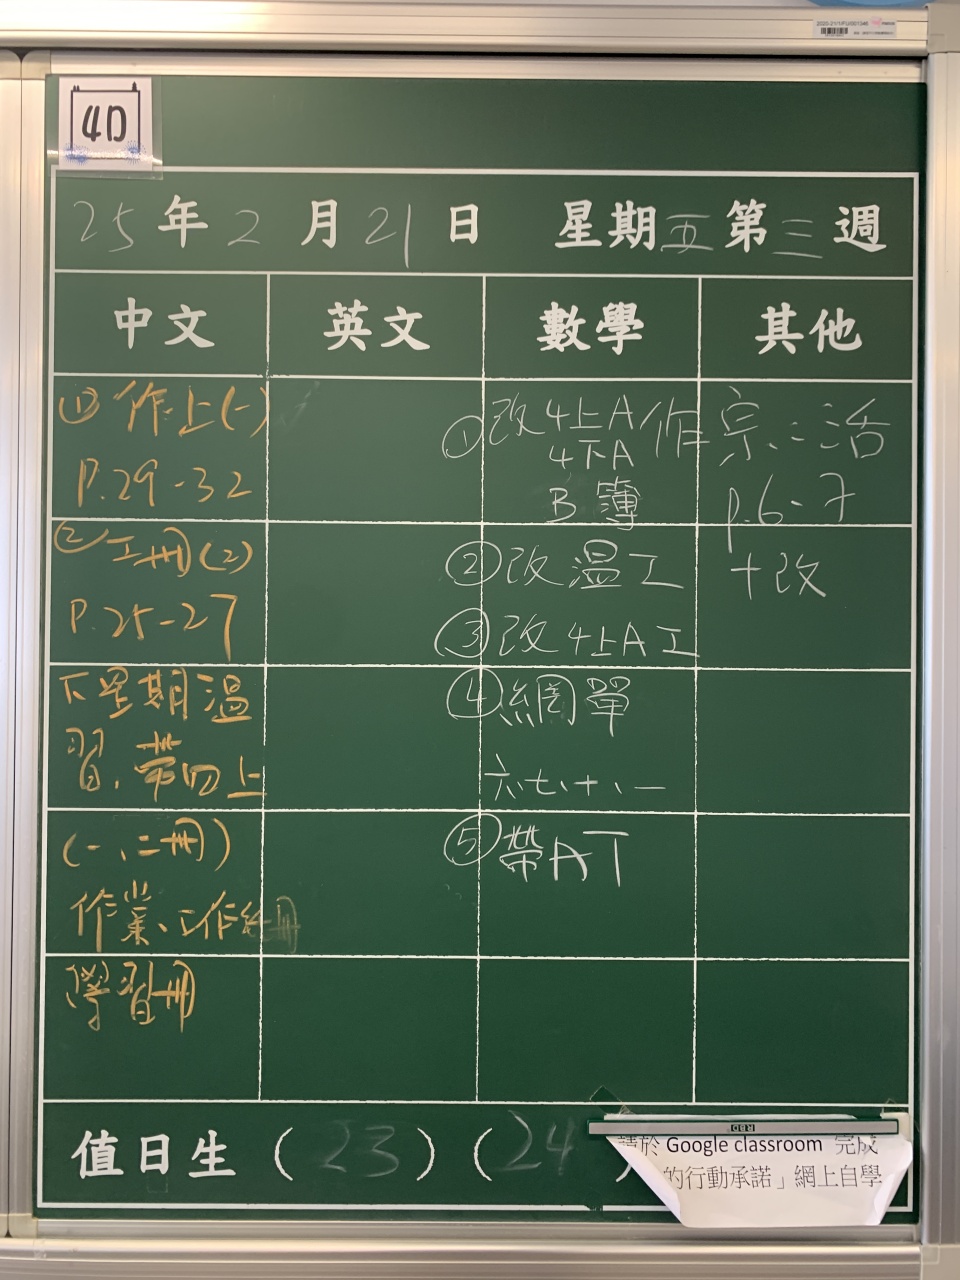 4D
25年2月21日 星期五第三週
中文 英文 數學 其他
① 作上(一)
P.29-32
② 工冊(2)
P.25-27
下星期溫
習、帶四上
(一、二冊)
作業、工作紙
學習冊
① 改4上A作
4下A
B簿
② 改溫工
③ 改4上A工
④ 網單
六、七、十、一
⑤ 帶AT
宗、活
p.6-7
+改
值日生 (23) (24)
請於 Google classroom 完成
的行動承諾」網上自學